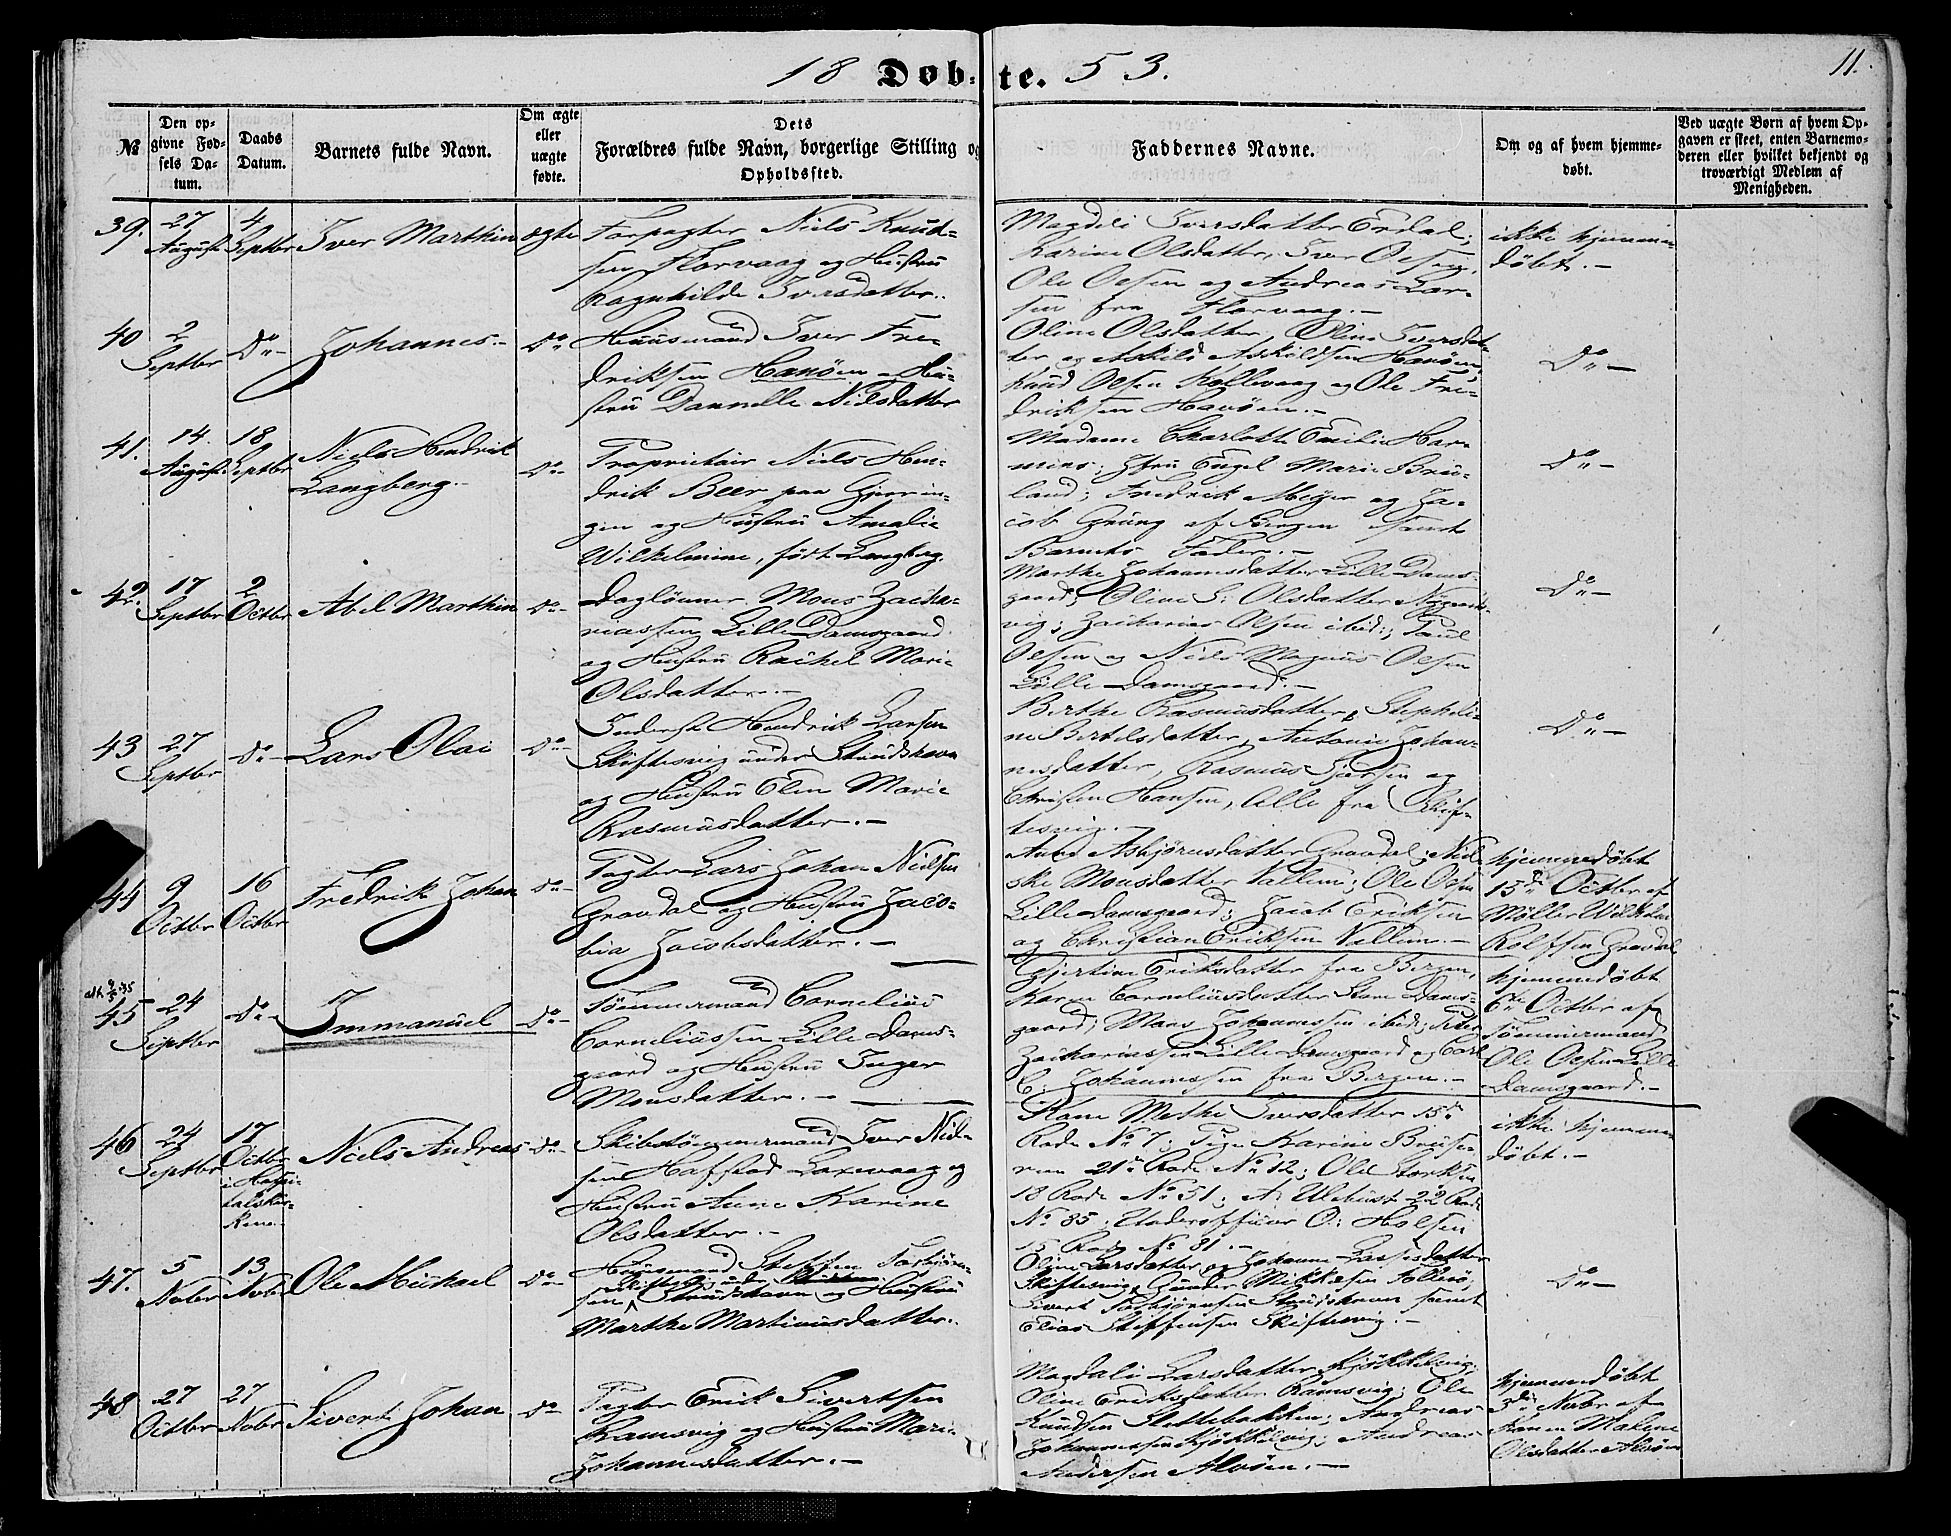 18 Døbte. 53.
11.
№
Den op-
givne Fød-
sels Da-
tum.
Daabs
Datum.
Barnets fulde Navn.
Om ægte
eller
uægte
fødte.
Dets
Forældres fulde Navn, borgerlige Stilling og
Opholdssted.
Faddernes Navne.
Om og af hvem hjemme-
døbt.
Ved uægte Børn af hvem Op-
gaven er skeet, enten Barnemo-
deren eller hvilket bekjendt og
troværdigt Medlem af
Menigheden.
39.
27
August
4
Septbr
Iver Marthin
ægte
Forpagter Niels Knud-
sen Florvaag og Hustru
Ragnhilde Iversdatter.
Magdeli Iversdatter Erdal;
Karine Olsdatter, Iver Olsen,
Ole Olsen og Andreas Lar-
sen fra Florvaag.-
ikke hjemme-
døbt.-
40
2
Septbr
Do-
Johannes.-
Do
Huusmand Iver Fre-
driksen Hanøen og Hu-
stru Dannelle Nilsdatter
Oline Olsdatter, Oline Iversdat-
ter og Askild Askildsen Hanøen,
Knud Olsen Kollevaag og Ole Fre-
driksen Hanøen.-
Do-
41.
14.
August
18
Septbr
Niels Hendrik
Langberg.-
Do-
Proprietair Niels Hen-
drik Beer paa Gjerrin-
gen og Hustru Amalie
Wilhelmine, født Langberg.
Madame Charlotte Emilie Har-
mens; Jfru Engel Marie Bru-
land; Fredrik Meyer og Ja-
cob Grung af Bergen samt
Barnets Fader.-
Do-
42.
17
Septbr
2
Octbr
Abel Marthin
Do-
Dagløner Mons Zacha-
riassen Lille Damsgaard
og Hustru Rachel Marie
Olsdatter.-
Marthe Johannesdatter Lille Dams-
gaard; Oline S: Olsdatter Nygaards-
vig; Zacharias Olsen ibid:; Paul
Olsen og Niels Magnus Olsen
Lille Damsgaard.-
Do-
43
27
Septbr
Do-
Lars Olai
Do-
Inderst Hendrik Larsen
Skiftesvig under Strudshavn
og Hustru Elen Marie
Rasmusdatter.-
Berthe Rasmusdatter, Stepheli-
ne Bertelsdatter, Antonie Johan-
nesdatter, Rasmus Iversen og
Christen Hansen, Alle fra Skif-
tesvig.-
Do-
44
9
Octbr
16
Octbr
Fredrik Johan
Do-
Pagter Lars Johan Nielsen
Gravdal og Hustru Jaco-
bia Jacobsdatter.-
Anna Asbjørnsdatter Gravdal; Niel-
ske Monsdatter Vallem; Ole Olsen
Lille Damsgaard; Jacob Eriksen
og Christian Eriksen Vallem.-
hjemmedøbt
15de Octbr af
Møller Wilhelm
Rolfsen Gravdal
45
24
Septbr
Do-
Immanuel
Do-
Tømmermand Cornelius
Corneliussen Lille Dams-
gaard og Hustru Inger
Monsdatter.-
Gjertine Eriksdatter fra Bergen,
Karen Corneliusdatter Store Dams-
gaard; Mons Johannessen ibid; Peter
Zachariassen Lille Damsgaard og Carl
C: Johannessen fra Bergen.-
hjemmedøbt
6te Octbr af
Tømmermand
Ole Olsen Lille
Damsgaard.-
46
24
Septbr
17
Octbr
i Hospi-
talskir-
ken.-
Niels Andreas
Do-
Skibstømmermand Iver Niel-
sen Hafstad Laxevaag og
Hustru Anne Karine
Olsdatter.-
Kone Methe Iversdatter 15de
Rode No 7; Pige Karine Bruse
21de Rode No 12; Ole Storksen
18 Rode No 51; A: Ulehust 22 Rode
No 85; Underofficier O: Holsen
15 Rode No 81.-
ikke hjemme-
døbt.-
47.
5
Novbr
13
Novbr
Ole Michael
Do-
Huusmand Steffen Torbjørn-
Skiftesvig under
sen, Strudshavn og Hustru
Marthe Martinusdatter.
Oline Larsdatter og Johanne Larsdatter
Skiftesvig, Gunder Mikkelsen Follesø,
Sivert Torbjørnsen Strudshavn samt
Elias Steffensen Skiftesvig.-
Do-
48
27
Octbr
27
Novbr
Sivert Johan
Do
Pagter Erik Sivertsen
Ramsvig og Hustru Marie
Johannesdatter.-
Magdali Larsdatter Kjøkkelvig;
Oline Eriksdatter Ramsvig; Ole
Knudsen Slettebakken; Andreas
Johannessen Kjøkkelvig; Andreas
Andersen Alvøen.-
hjemmedøbt
3de Novbr af
Karen Malene
Olsdatter Alvøen